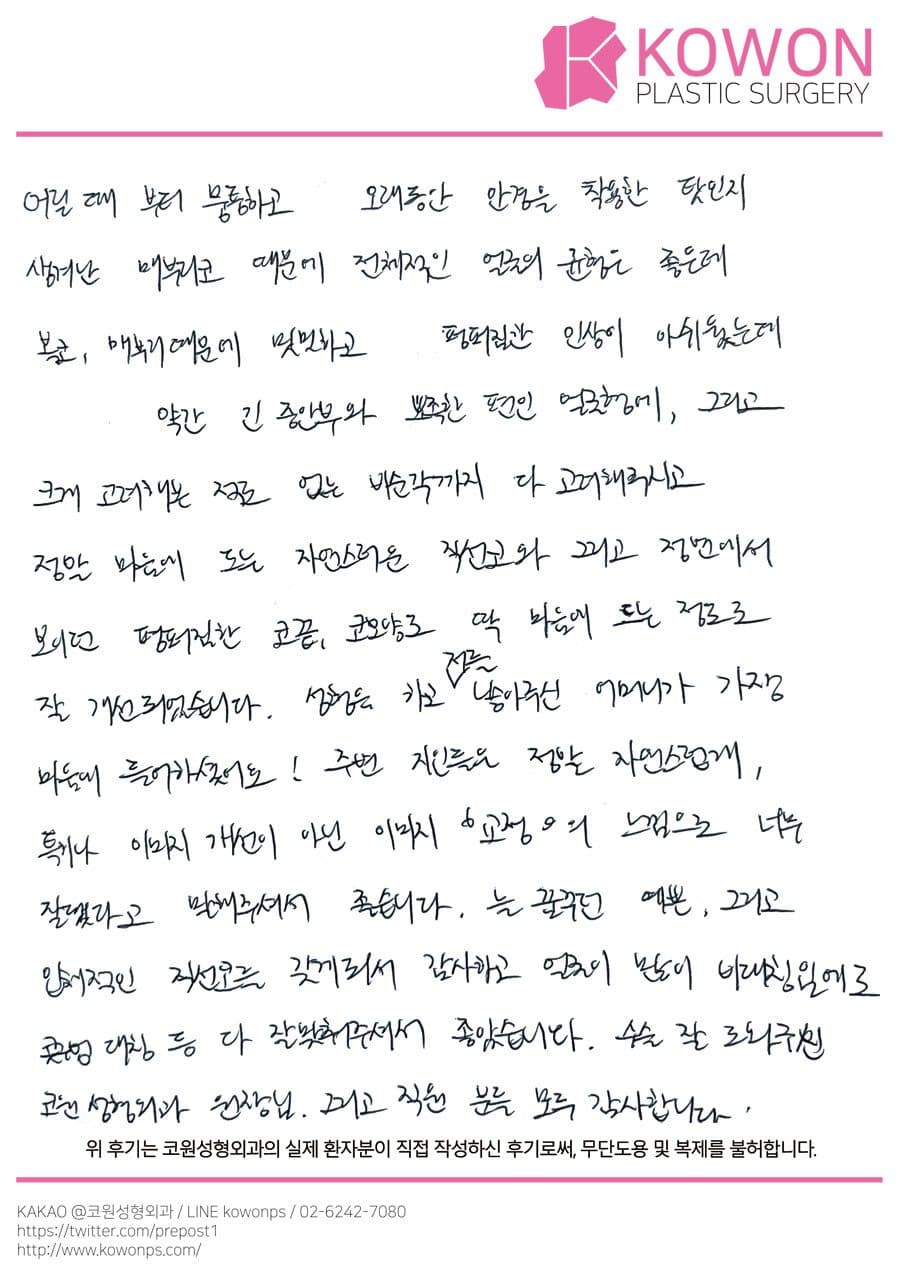 KOWON
PLASTIC SURGERY
어릴 때 부터 뭉툭하고 오래동안 안경을 착용한 탓인지
생겨난 매부리코 때문에 전체적인 얼굴의 균형은 좋은데
복코, 매부리때문에 밋밋하고 펑퍼짐한 인상이 아쉬웠는데
약간 긴 중안부와 뾰족한 편인 얼굴형에, 그리고
크게 고려해본 적도 없는 비순각까지 다 고려해주시고
정말 마음에 드는 자연스러운 직선코와 그리고 정면에서
보이던 펑퍼짐한 코끝, 코모양도 딱 마음에 드는 정도로
잘 개선되었습니다. 성형을 하고 저를 낳아주신 어머니가 가장
마음에 들어하셨어요! 주변 지인들은 정말 자연스럽게,
특히나 이미지 개선이 아닌 이미지 '교정'의 느낌으로 너무
잘됐다고 말해주셔서 좋습니다. 늘 꿈꾸던 예쁜, 그리고
입체적인 직선코를 갖게되서 감사하고 얼굴이 많이 비대칭임에도
콧구멍 대칭 등 다 잘맞춰주셔서 좋았습니다. 수술 잘 도와주신
코원성형외과 원장님. 그리고 직원 분들 모두 감사합니다.
위 후기는 코원성형외과의 실제 환자분이 직접 작성하신 후기로써, 무단도용 및 복제를 불허합니다.
KAKAO @코원성형외과 / LINE kowonps / 02-6242-7080
https://twitter.com/prepost1
http://www.kowonps.com/